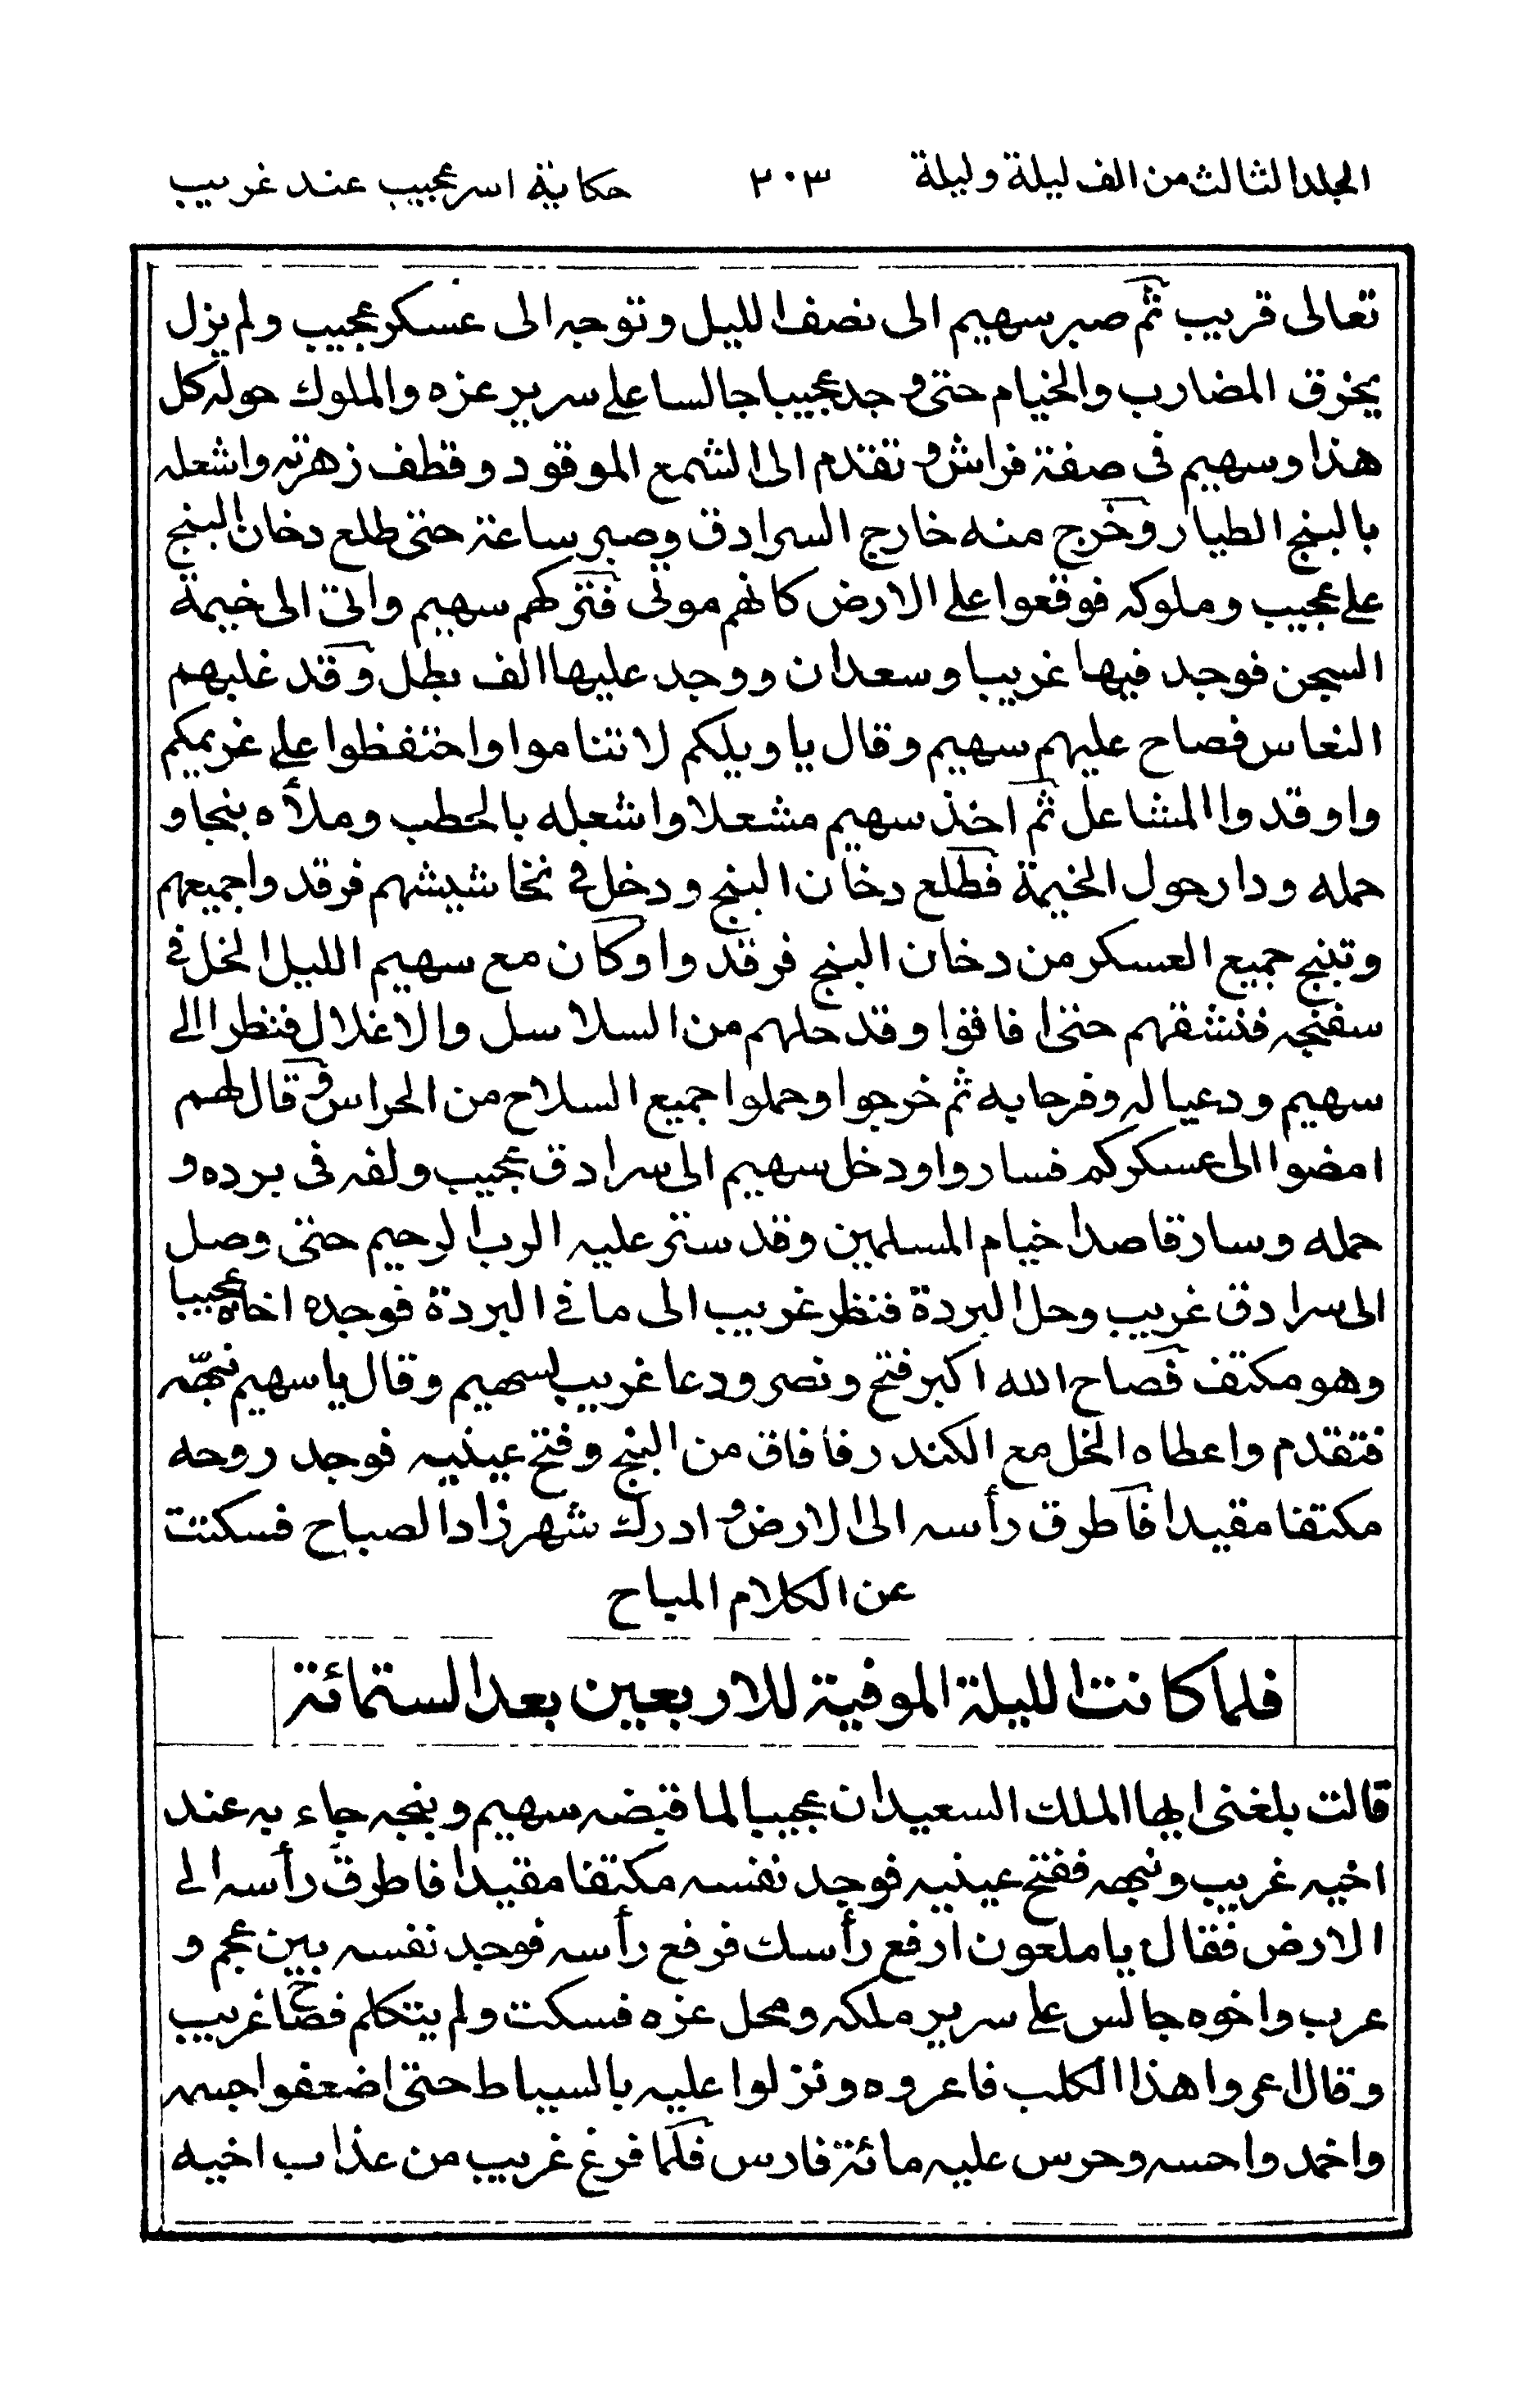 المجلد الثالث من الف ليلة وليلة ٣٠٣ حكاية اسر عجيب عند غريب
تعالى قريب ثم صبر سهيم الى نصف الليل وتوجه الى عسكر عجيب ولم يزل
يخرق المضارب والخيام حتى وجد عجيبا جالسا على سرير عزه والملوك حوله كل
هذا وسهيم فى صفة فراش وتقدم الى الشمع الموقود وقطف زهرته واشعله
بالبنج الطيار وخرج منه خارج السرادق وصبر ساعة حتى طلع دخان البنج
على عجيب وملوكه فوقعوا على الارض كانهم موتى فتركهم سهيم واتى الى خيمة
السجن فوجد فيها غريبا وسعدان ووجد عليها الف بطل وقد غلبهم
النعاس فصاح عليهم سهيم وقال يا ويلكم لا تناموا واحتفظوا على غريمكم
واوقدوا المشاعل ثم اخذ سهيم مشعلا واشعله بالحطب وملأه بنجا و
حمله ودار حول الخيمة فطلع دخان البنج ودخل فى نخاشيشهم فرقدوا جميعهم
وتبنج جميع العسكر من دخان البنج فرقدوا وكان مع سهيم الليل الخل فى
سفنجه فنشقهم حتى افاقوا وقد حلهم من السلاسل والاغلال فنظرا الى
سهيم ودعيا له وفرحا به ثم خرجوا وحملوا جميع السلاح من الحراس وقال لهم
امضوا الى عسكركم فساروا ودخل سهيم الى سرادق عجيب ولفه فى برده و
حمله وسار قاصدا خيام المسلمين وقد ستر عليه الرب الرحيم حتى وصل
الى سرادق غريب وحل البردة فنظر غريب الى ما فى البردة فوجده اخاه عجيبا
وهو مكتف فصاح الله اكبر فتح ونصر ودعا غريب لسهيم وقال يا سهيم نبّهه
فتقدم واعطاه الخل مع الكندر فافاق من البنج وفتح عينيه فوجد روحه
مكتفا مقيدا فاطرق رأسه الى الارض وادرك شهرزاد الصباح فسكتت
عن الكلام المباح
فلما كانت الليلة الموفية للاربعين بعد الستمائة
قالت بلغنى ايها الملك السعيد ان عجيبا لما قبضه سهيم وبنجه جاء به عند
اخيه غريب ونبهه ففتح عينيه فوجد نفسه مكتفا مقيدا فاطرق رأسه الى
الارض فقال يا ملعون ارفع رأسك فرفع رأسه فوجد نفسه بين عجم و
عرب واخوه جالس على سرير ملكه ومحل عزه فسكت ولم يتكلم فصاح غريب
وقال اعروا هذا الكلب فاعروه ونزلوا عليه بالسياط حتى اضعفوا جسمه
واخمدوا حسه وحرس عليه مائة فارس فلما فرغ غريب من عذاب اخيه